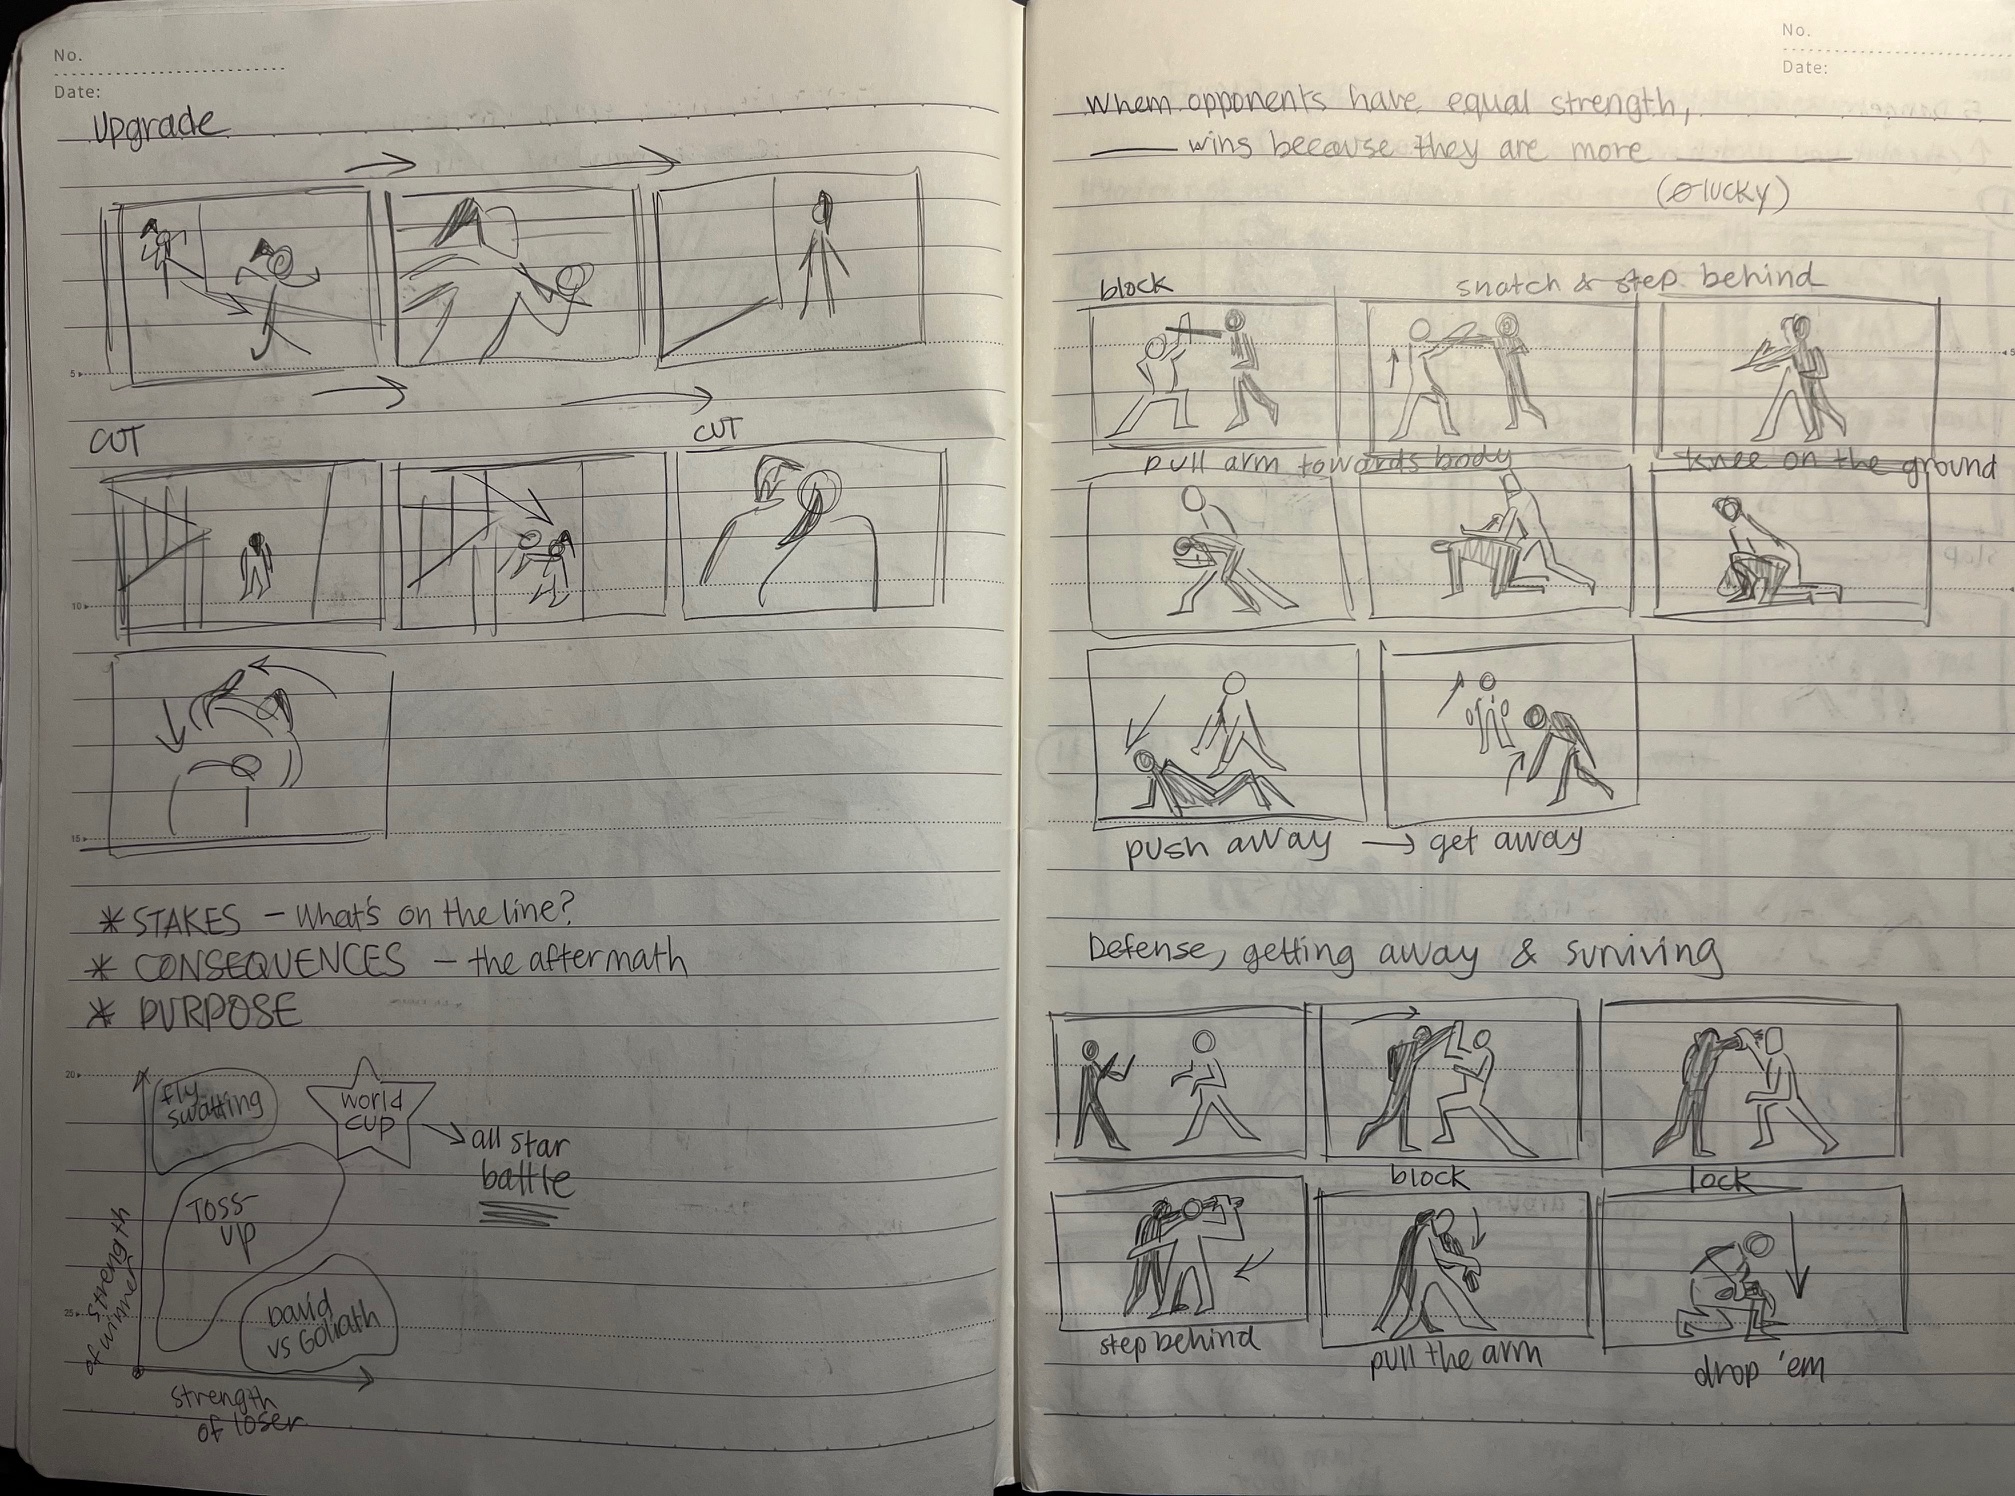 No.
Date:
Upgrade
CUT
CUT
5
10
15
* STAKES - What's on the line?
* CONSEQUENCES - the aftermath
* PURPOSE
20
25
fly
swatting
world
cup
all star
battle
Toss-
up
David
vs Goliath
strength
of winner
strength
of loser
No.
Date:
Whem opponents have equal strength,
____ wins because they are more ________
(∅ lucky)
block
snatch & step behind
5
pull arm towards body
knee on the ground
push away → get away
Defense, getting away & suriving
block
lock
step behind
pull the arm
drop 'em